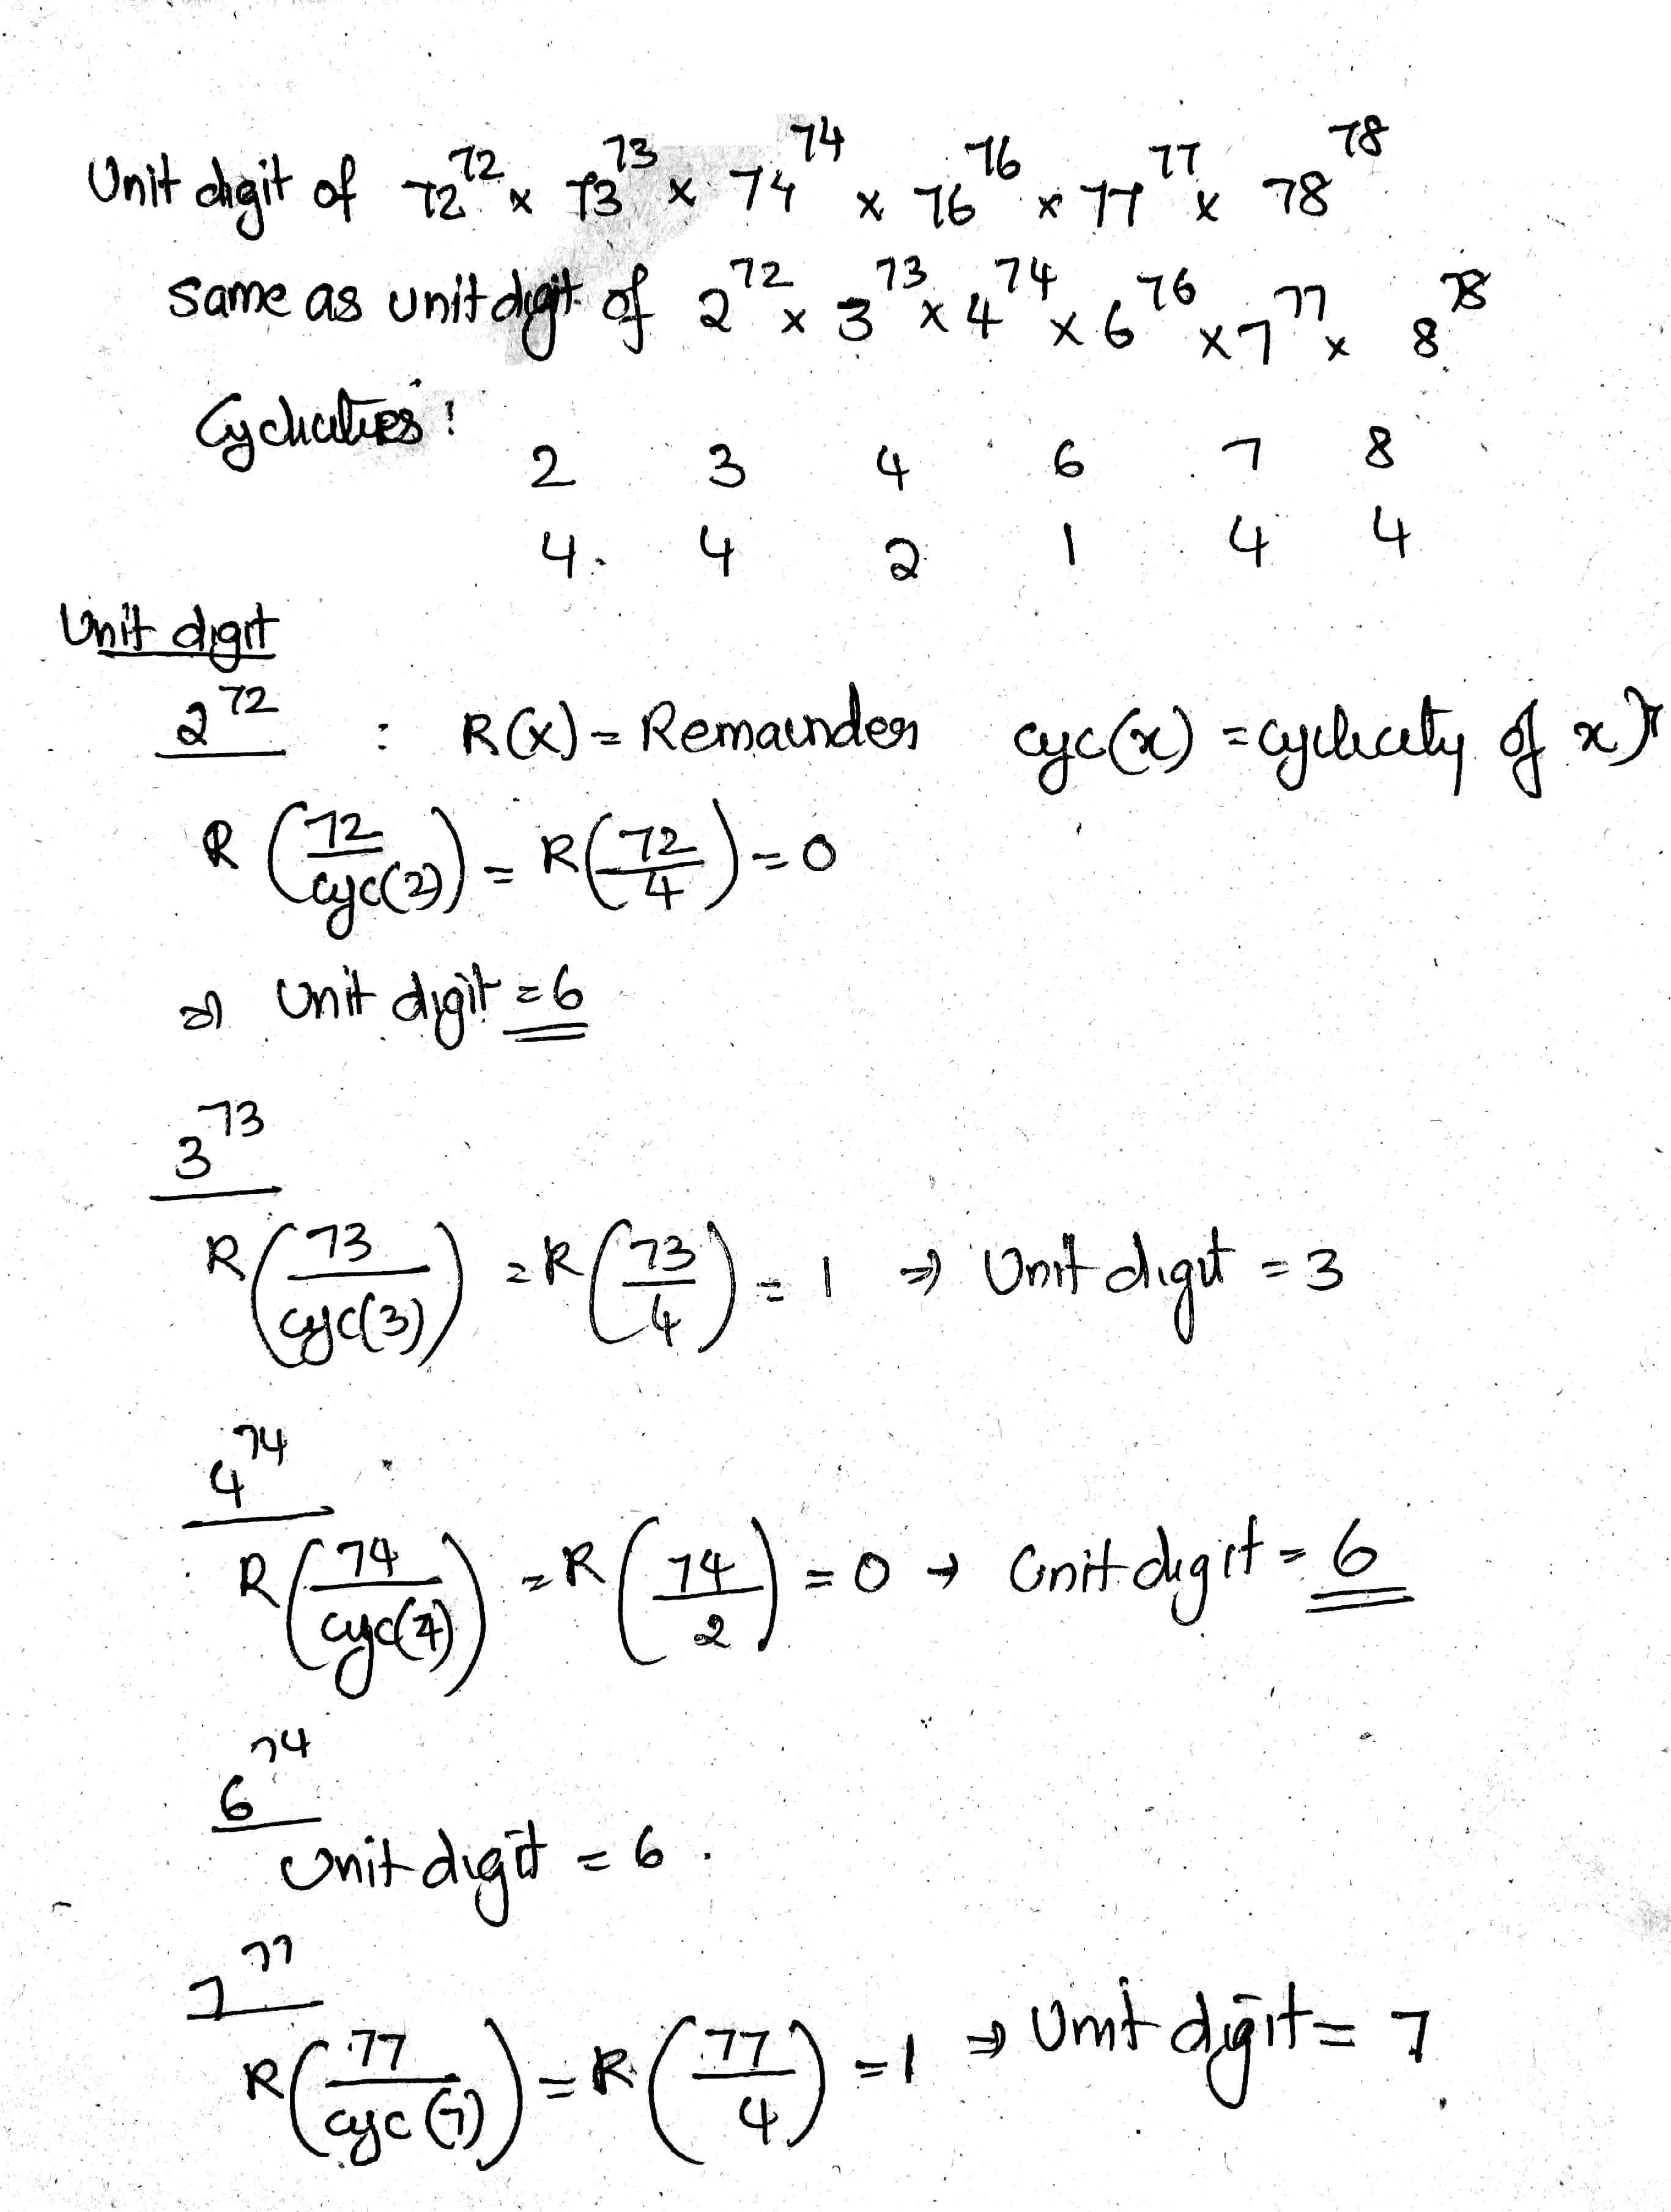 Unit digit of 72^72 × 73^73 × 74^74 × 76^76 × 77^77 × 78^78
same as unit digit of 2^72 × 3^73 × 4^74 × 6^76 × 7^77 × 8^78
Cyclicities :
2 3 4 6 7 8
4 4 2 1 4 4
Unit digit
2^72 : R(x) = Remainder cyc(x) = cyclicity of x
R (72/cyc(2)) = R(72/4) = 0
⇒ Unit digit = 6
3^73
R (73/cyc(3)) = R (73/4) = 1 ⇒ Unit digit = 3
4^74
R (74/cyc(4)) = R (74/2) = 0 → Unit digit = 6
6^74
Unit digit = 6.
7^77
R (77/cyc(7)) = R (77/4) = 1 ⇒ Unit digit = 7